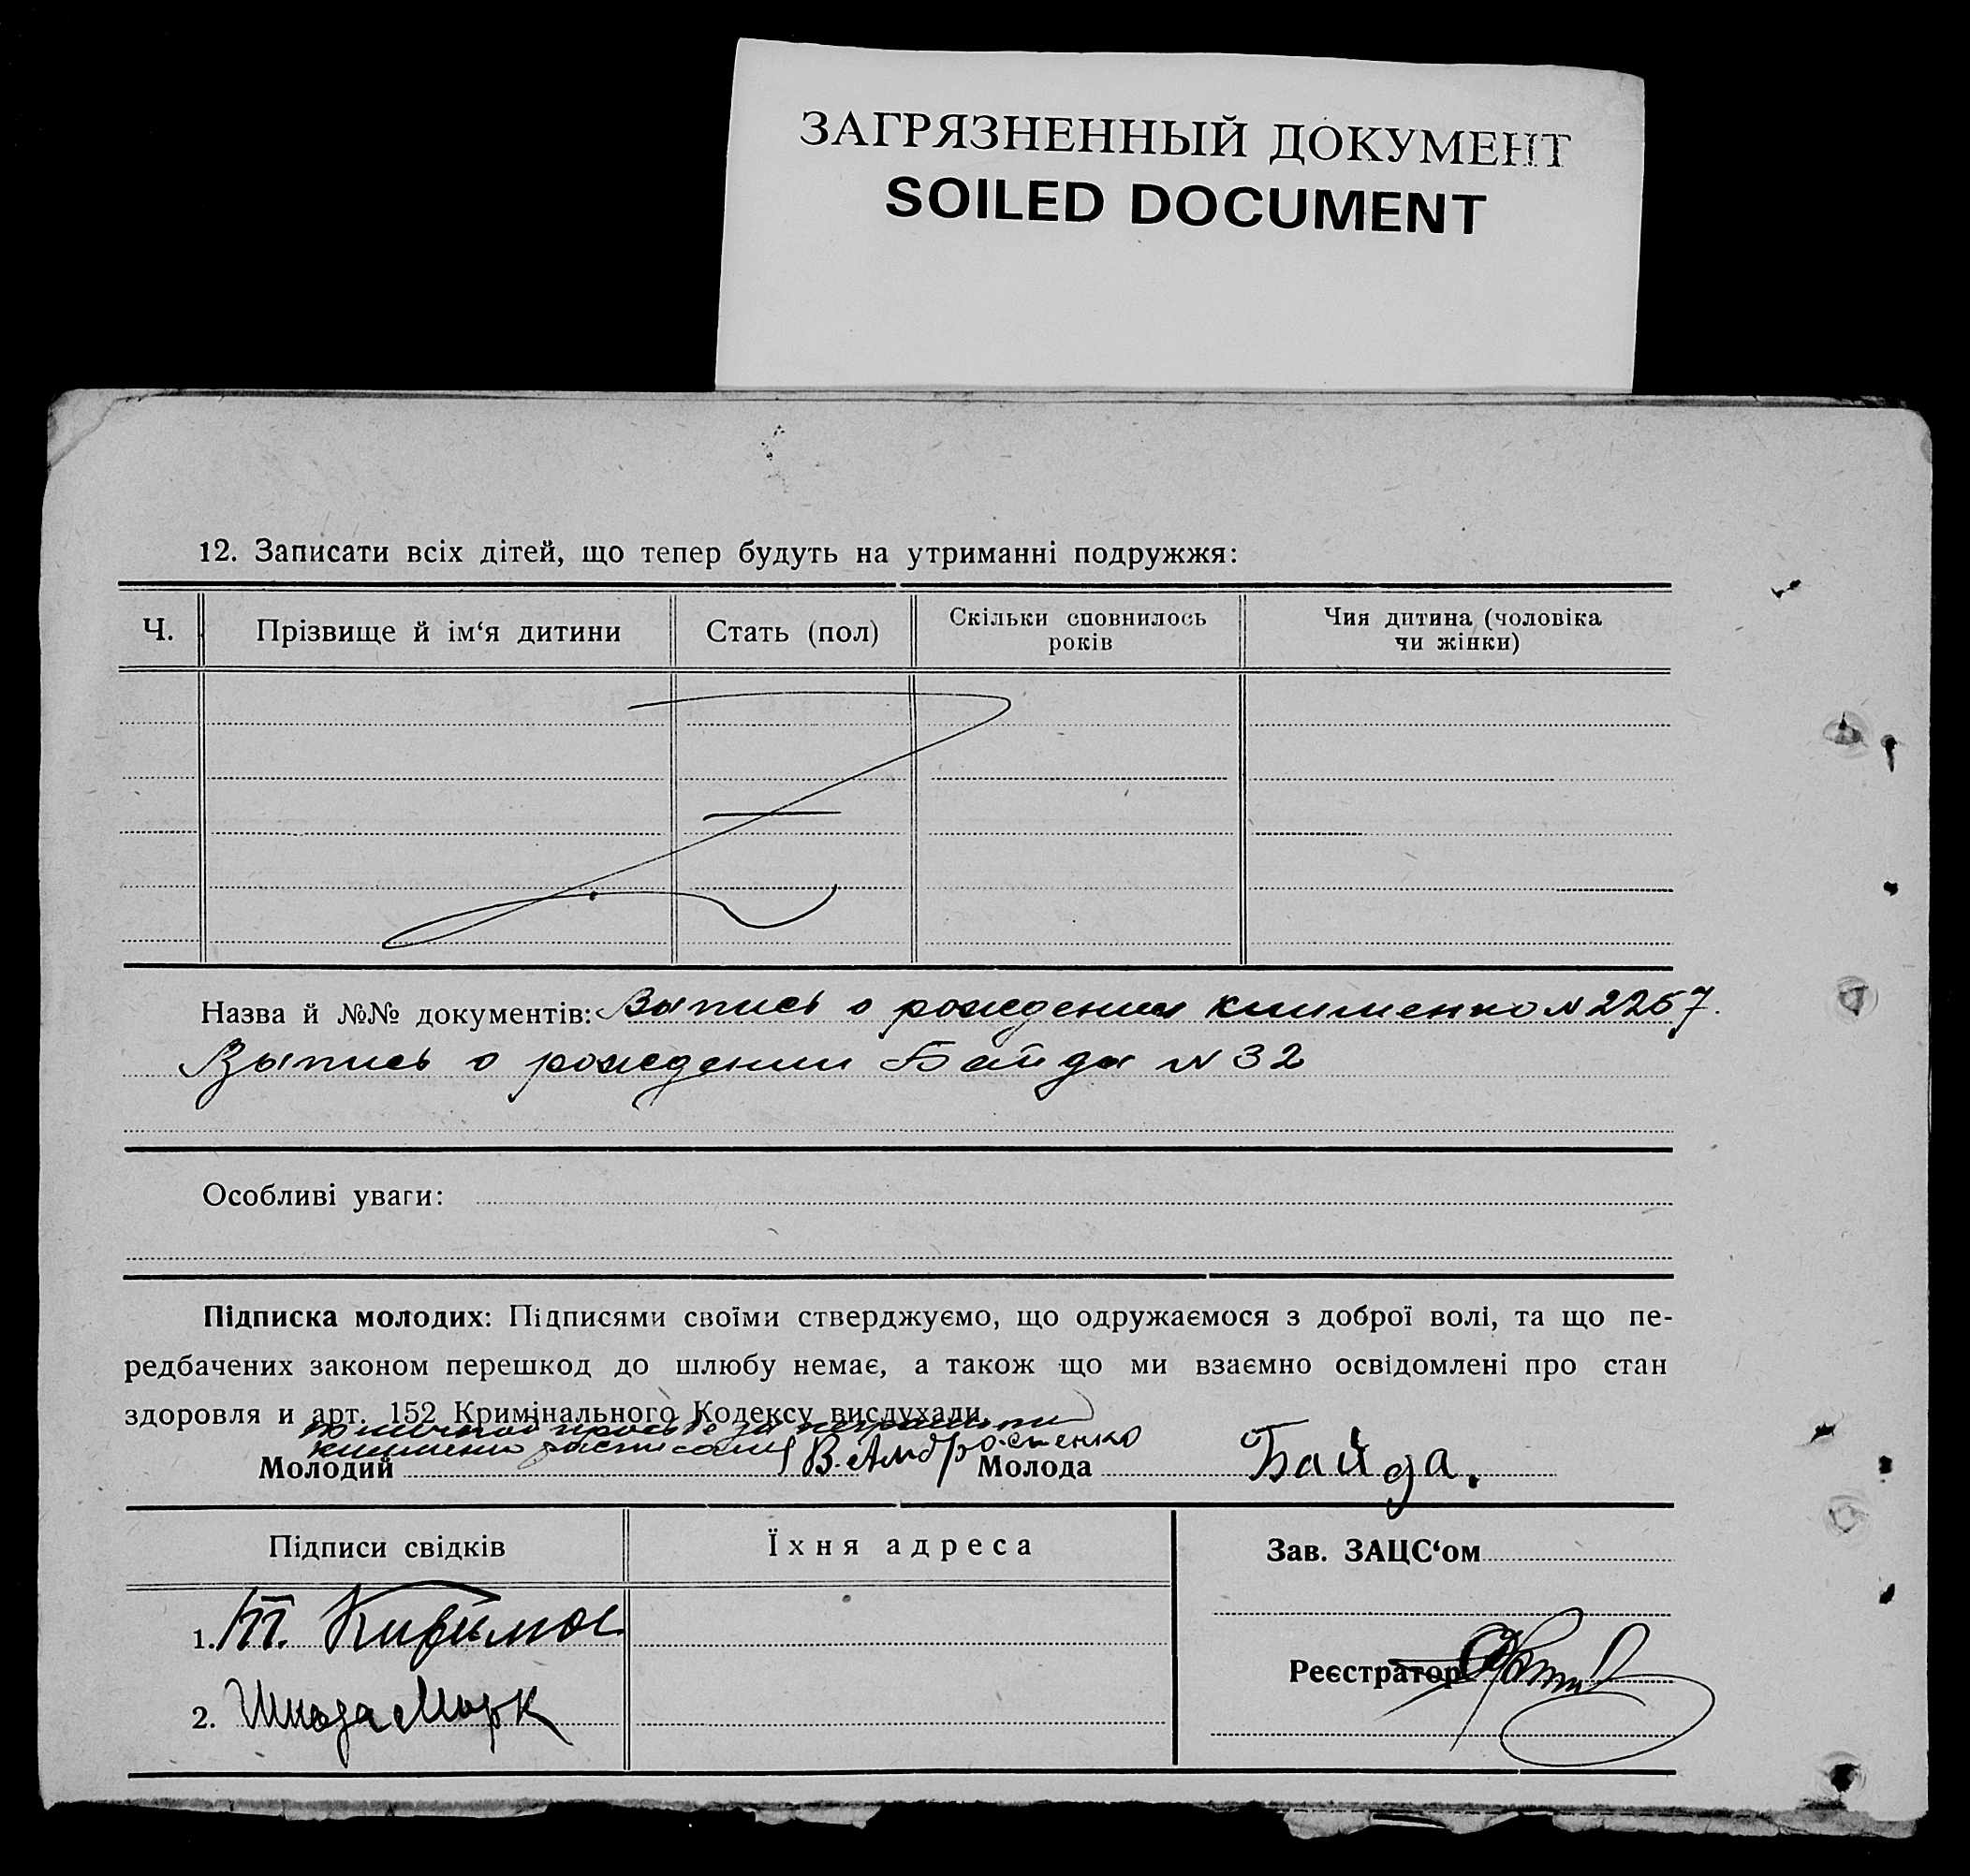 ЗАГРЯЗНЕННЫЙ ДОКУМЕНТ
SOILED DOCUMENT
12. Записати всіх дітей, що тепер будуть на утриманні подружжя:
Ч.
Прізвище й ім‘я дитини
Стать (пол)
Скільки сповнилось
років
Чия дитина (чоловіка
чи жінки)
Назва й №№ документів: Выпись о рождении Клименко N 2267.
Выпись о рождении Байда N 32
Особливі уваги:
Підписка молодих: Підписями своїми стверджуємо, що одружаємося з доброї волі, та що пе-
редбачених законом перешкод до шлюбу немає, а також що ми взаємно освідомлені про стан
здоровля и арт. 152 Кримінального Кодексу вислухали.
По личной просьбе за неграмотн
Клименко расписался В. Амбросименко
Молодий
Молода Байда.
Підписи свідків
Їхня адреса
Зав. ЗАЦС‘ом
1. Т.
2. Шкода Марк
Реєстратор